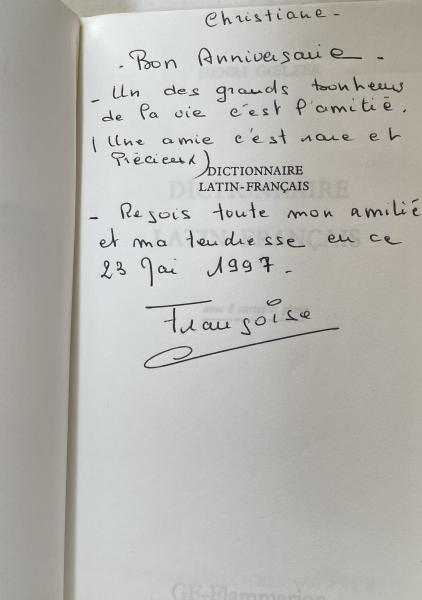 Christiane -
- Bon Anniversaire -
- Un des grands bonheurs
de la vie c'est l'amitié.
( Une amie c'est rare et
Précieux)
DICTIONNAIRE
LATIN-FRANÇAIS
- Reçois toute mon amitié
et ma tendresse en ce
23 Mai 1997 -
Françoise
GF-Flammarion